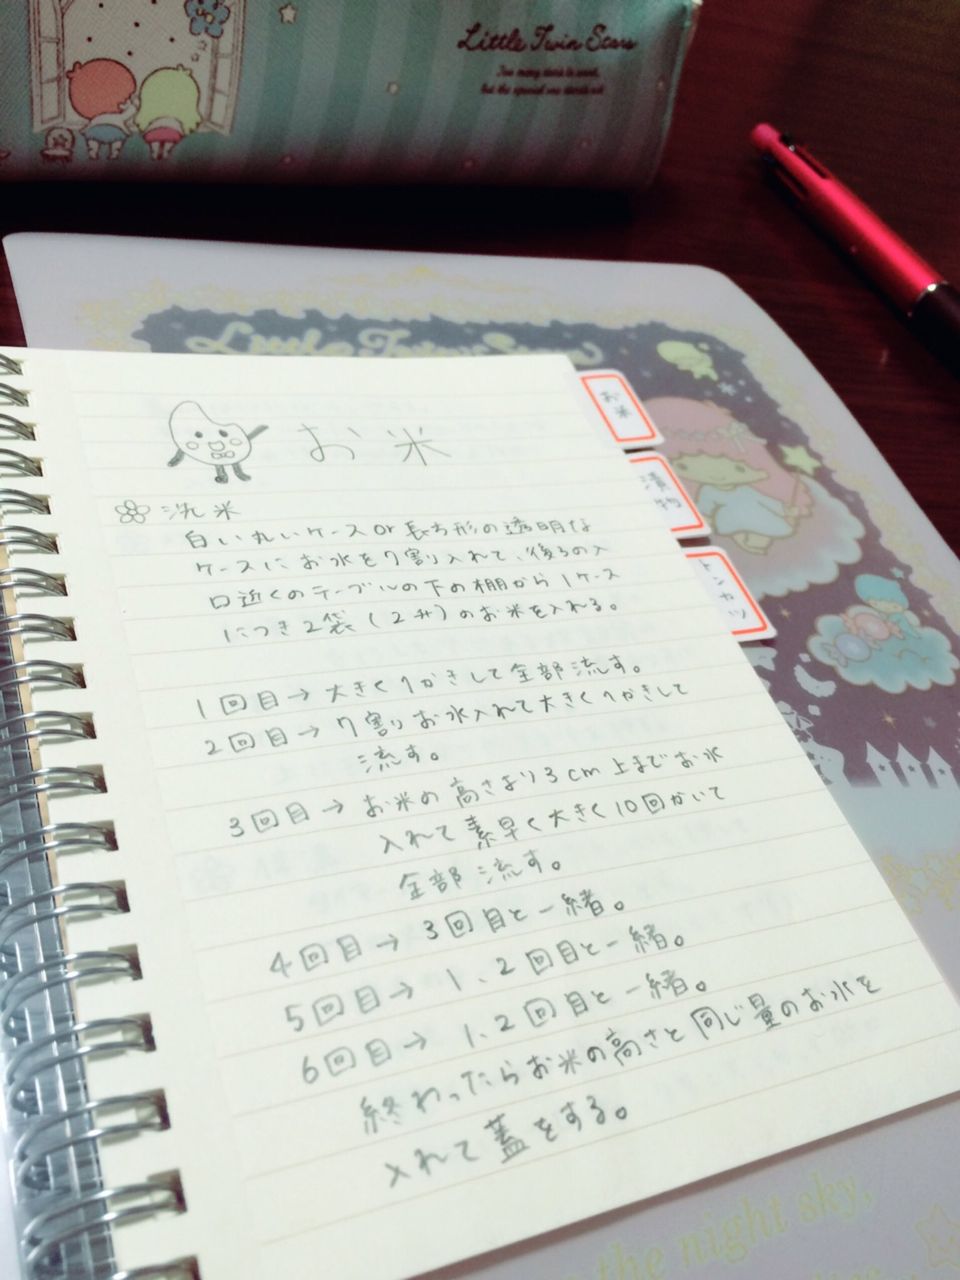 Little Twin Stars
Little Twin Stars
お米
漬物
トンカツ
お米
洗米
白い丸いケースor長方形の透明な
ケースにお水を7割り入れて、後ろの入
口近くのテーブルの下の棚から1ケース
につき2袋(2升)のお米を入れる。
1回目→大きく1かきして全部流す。
2回目→7割りお水入れて大きく1かきして
流す。
3回目→お米の高さより3cm上までお水
入れて素早く大きく10回かいて
全部流す。
4回目→3回目と一緒。
5回目→1、2回目と一緒。
6回目→1、2回目と一緒。
終わったらお米の高さと同じ量のお水を
入れて蓋をする。
the night sky,